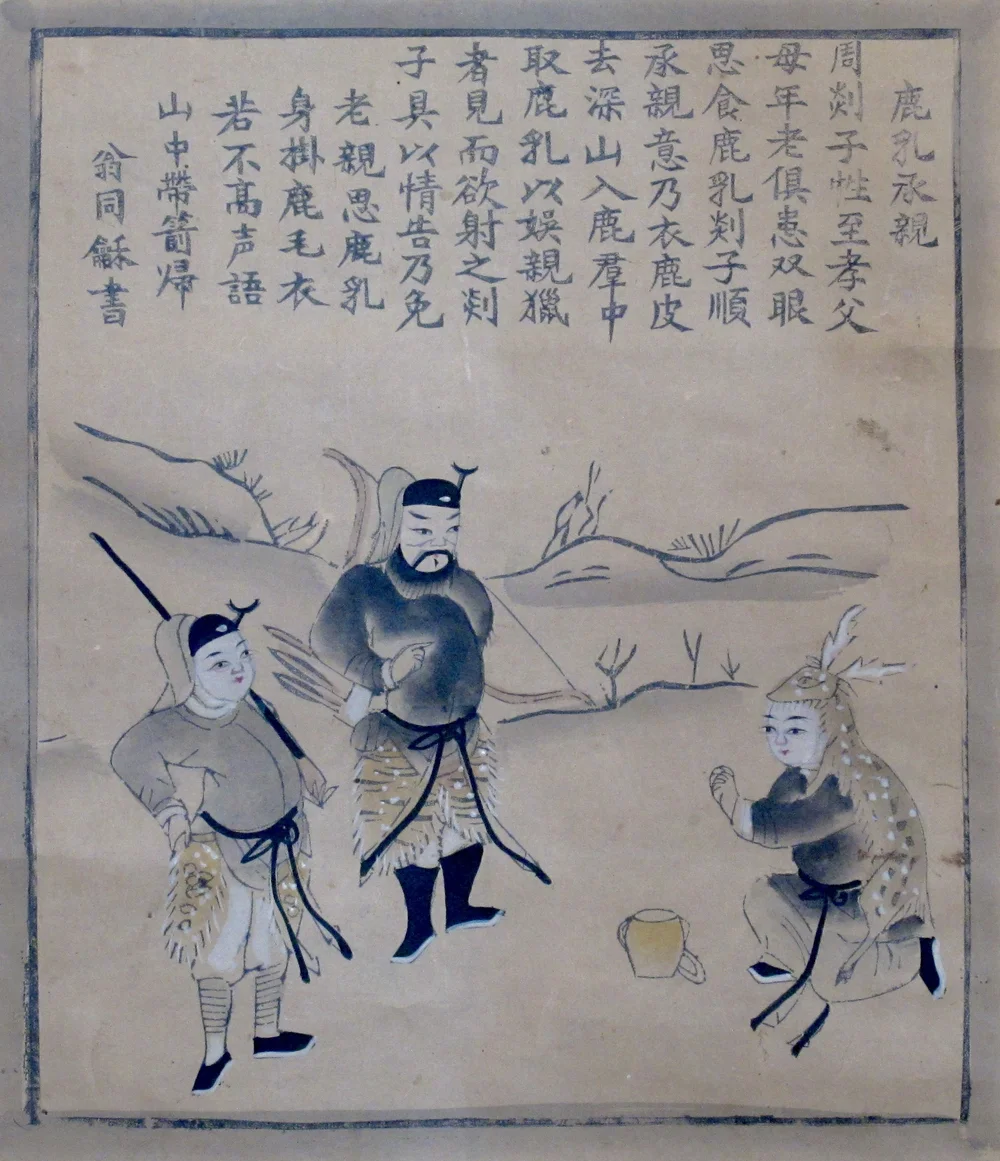 鹿乳承親
周剡子性至孝父
母年老俱患双眼
思食鹿乳剡子順
承親意乃衣鹿皮
去深山入鹿羣中
取鹿乳以娛親獵
者見而欲射之剡
子具以情告乃免
老親思鹿乳
身掛鹿毛衣
若不髙声語
山中帶箭帰
翁同龢書